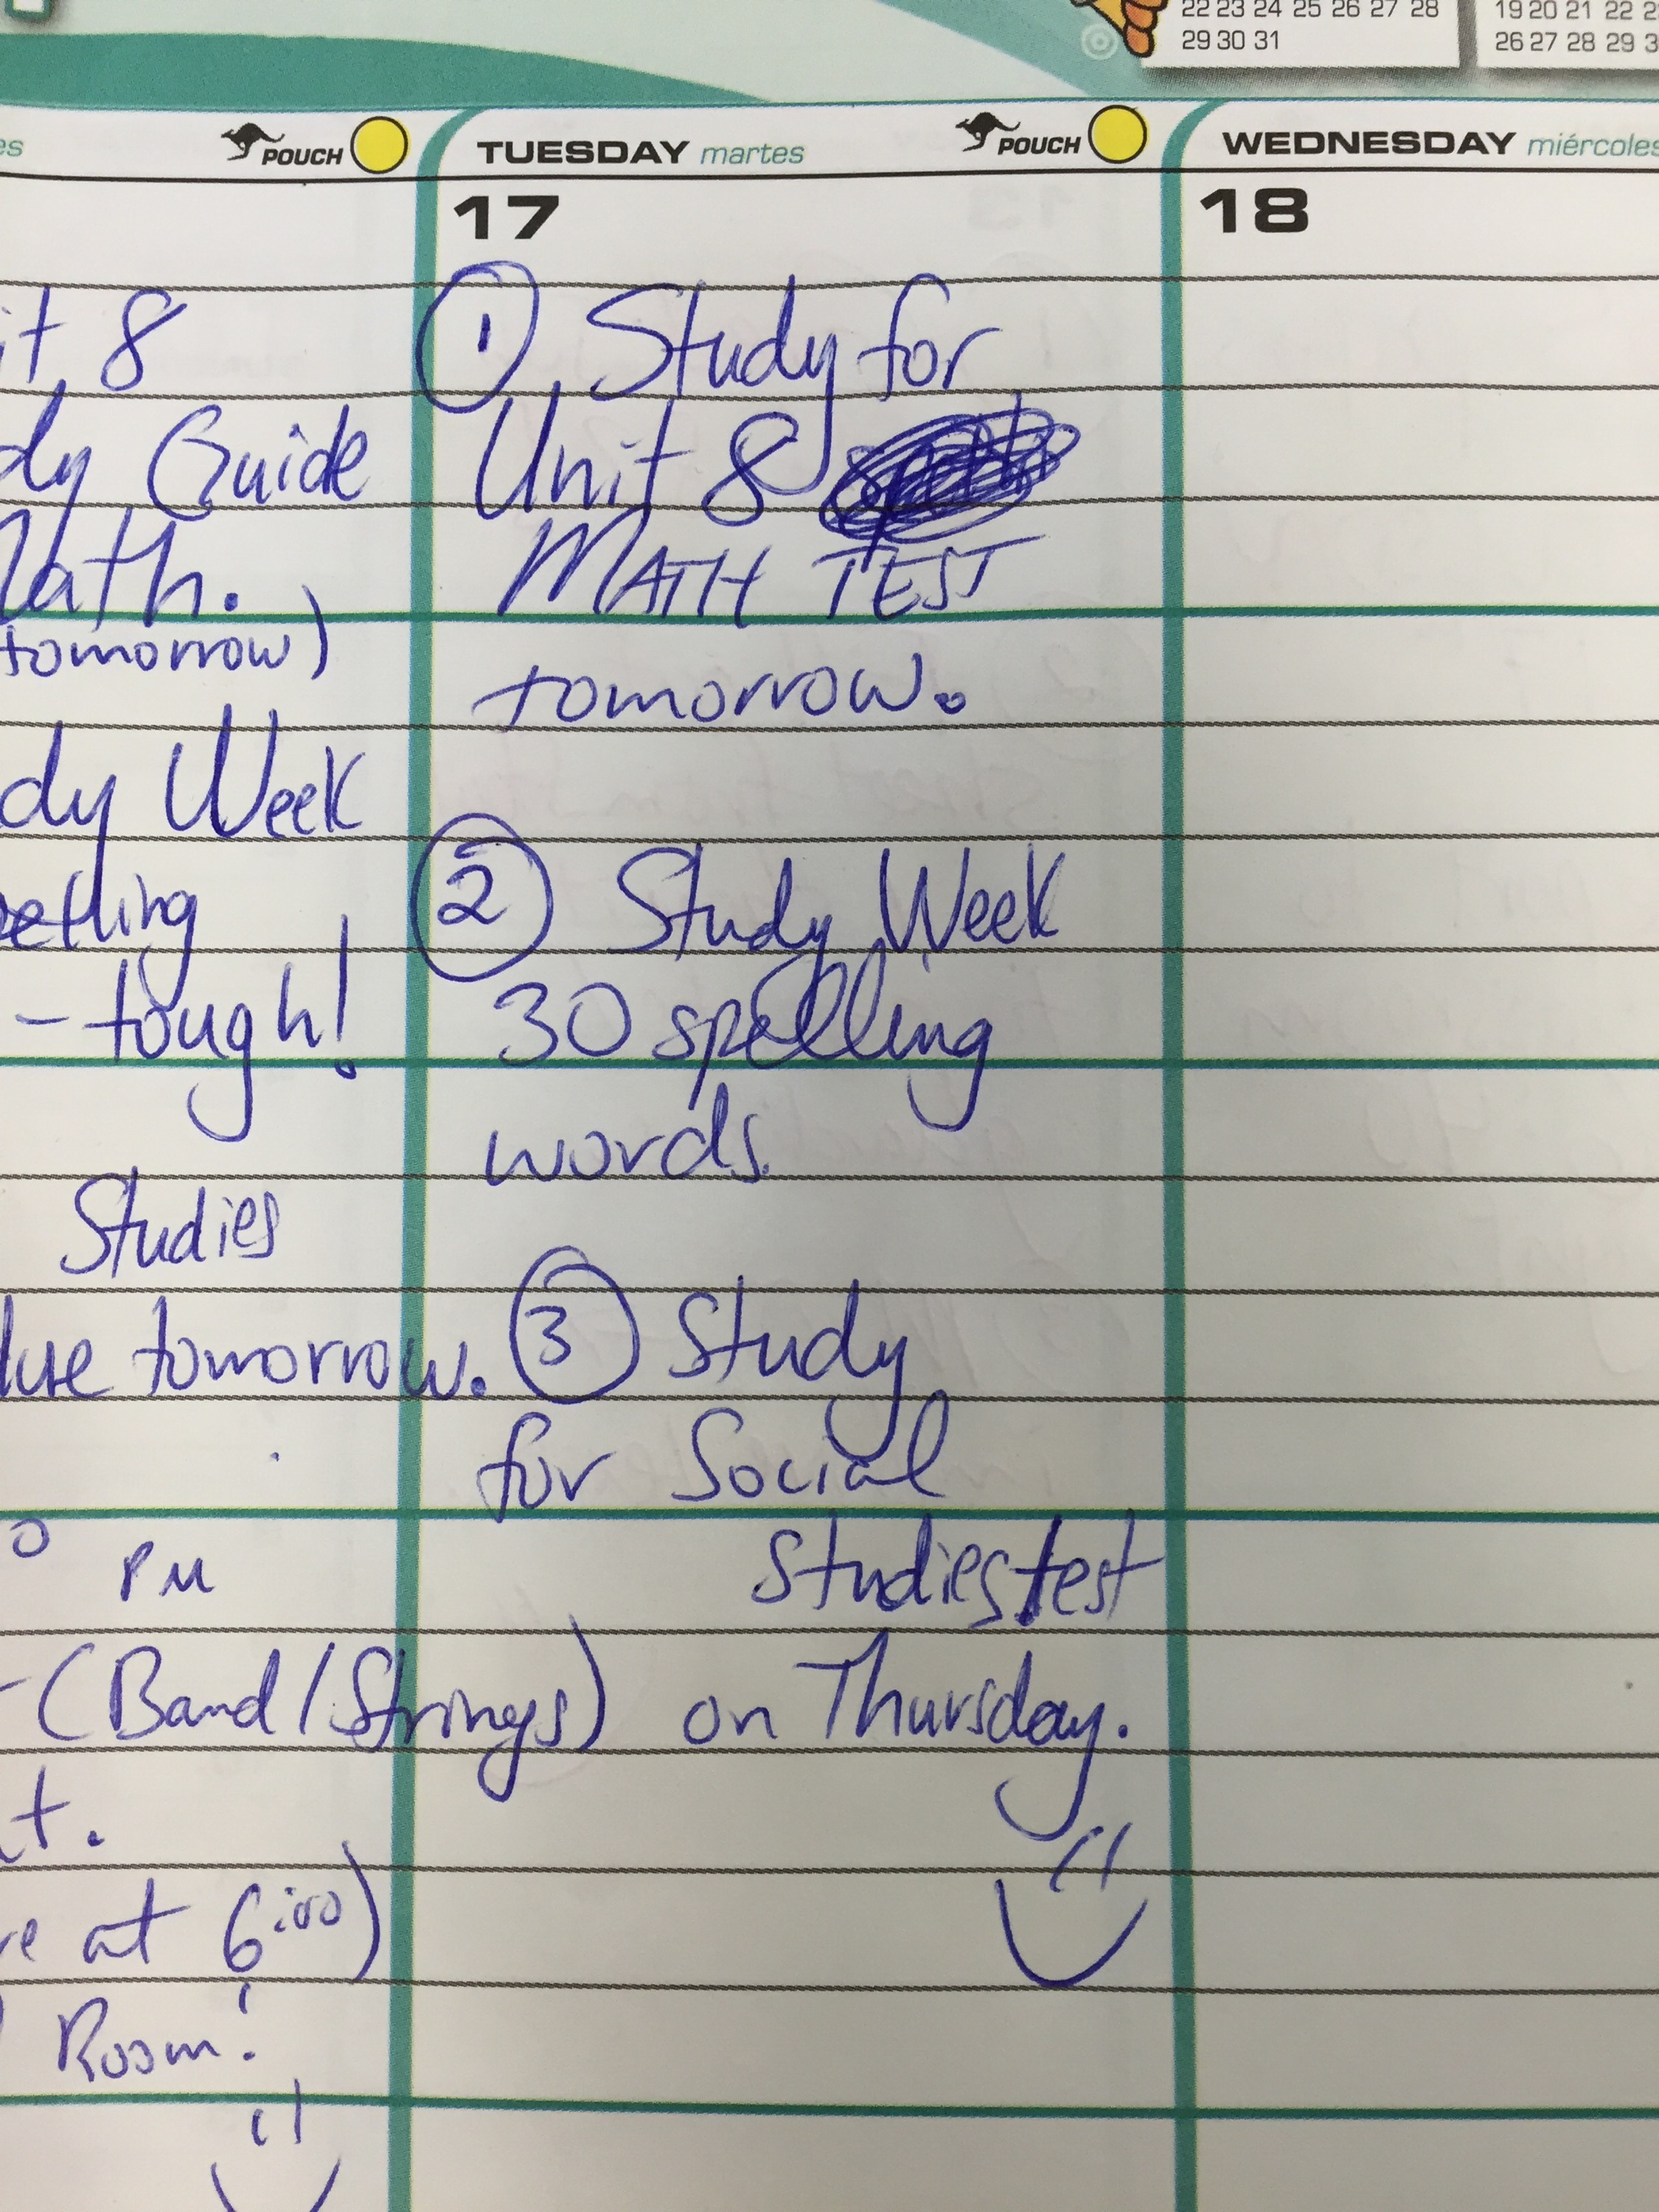 22 23 24 25 26 27 28
29 30 31
19 20 21 22
26 27 28 29
POUCH
it 8
dy Guide
Math.
tomorrow)
dy Week
pelling
- tough!
Studies
due tomorrow.
PM
(Band/Strings)
t.
at 6:00)
Room!
TUESDAY martes
POUCH
17
1 Study for
Unit 8
MATH TEST
tomorrow.
2 Study Week
30 spelling
words.
3 Study
for Social
Studies test
on Thursday.
WEDNESDAY miércoles
18